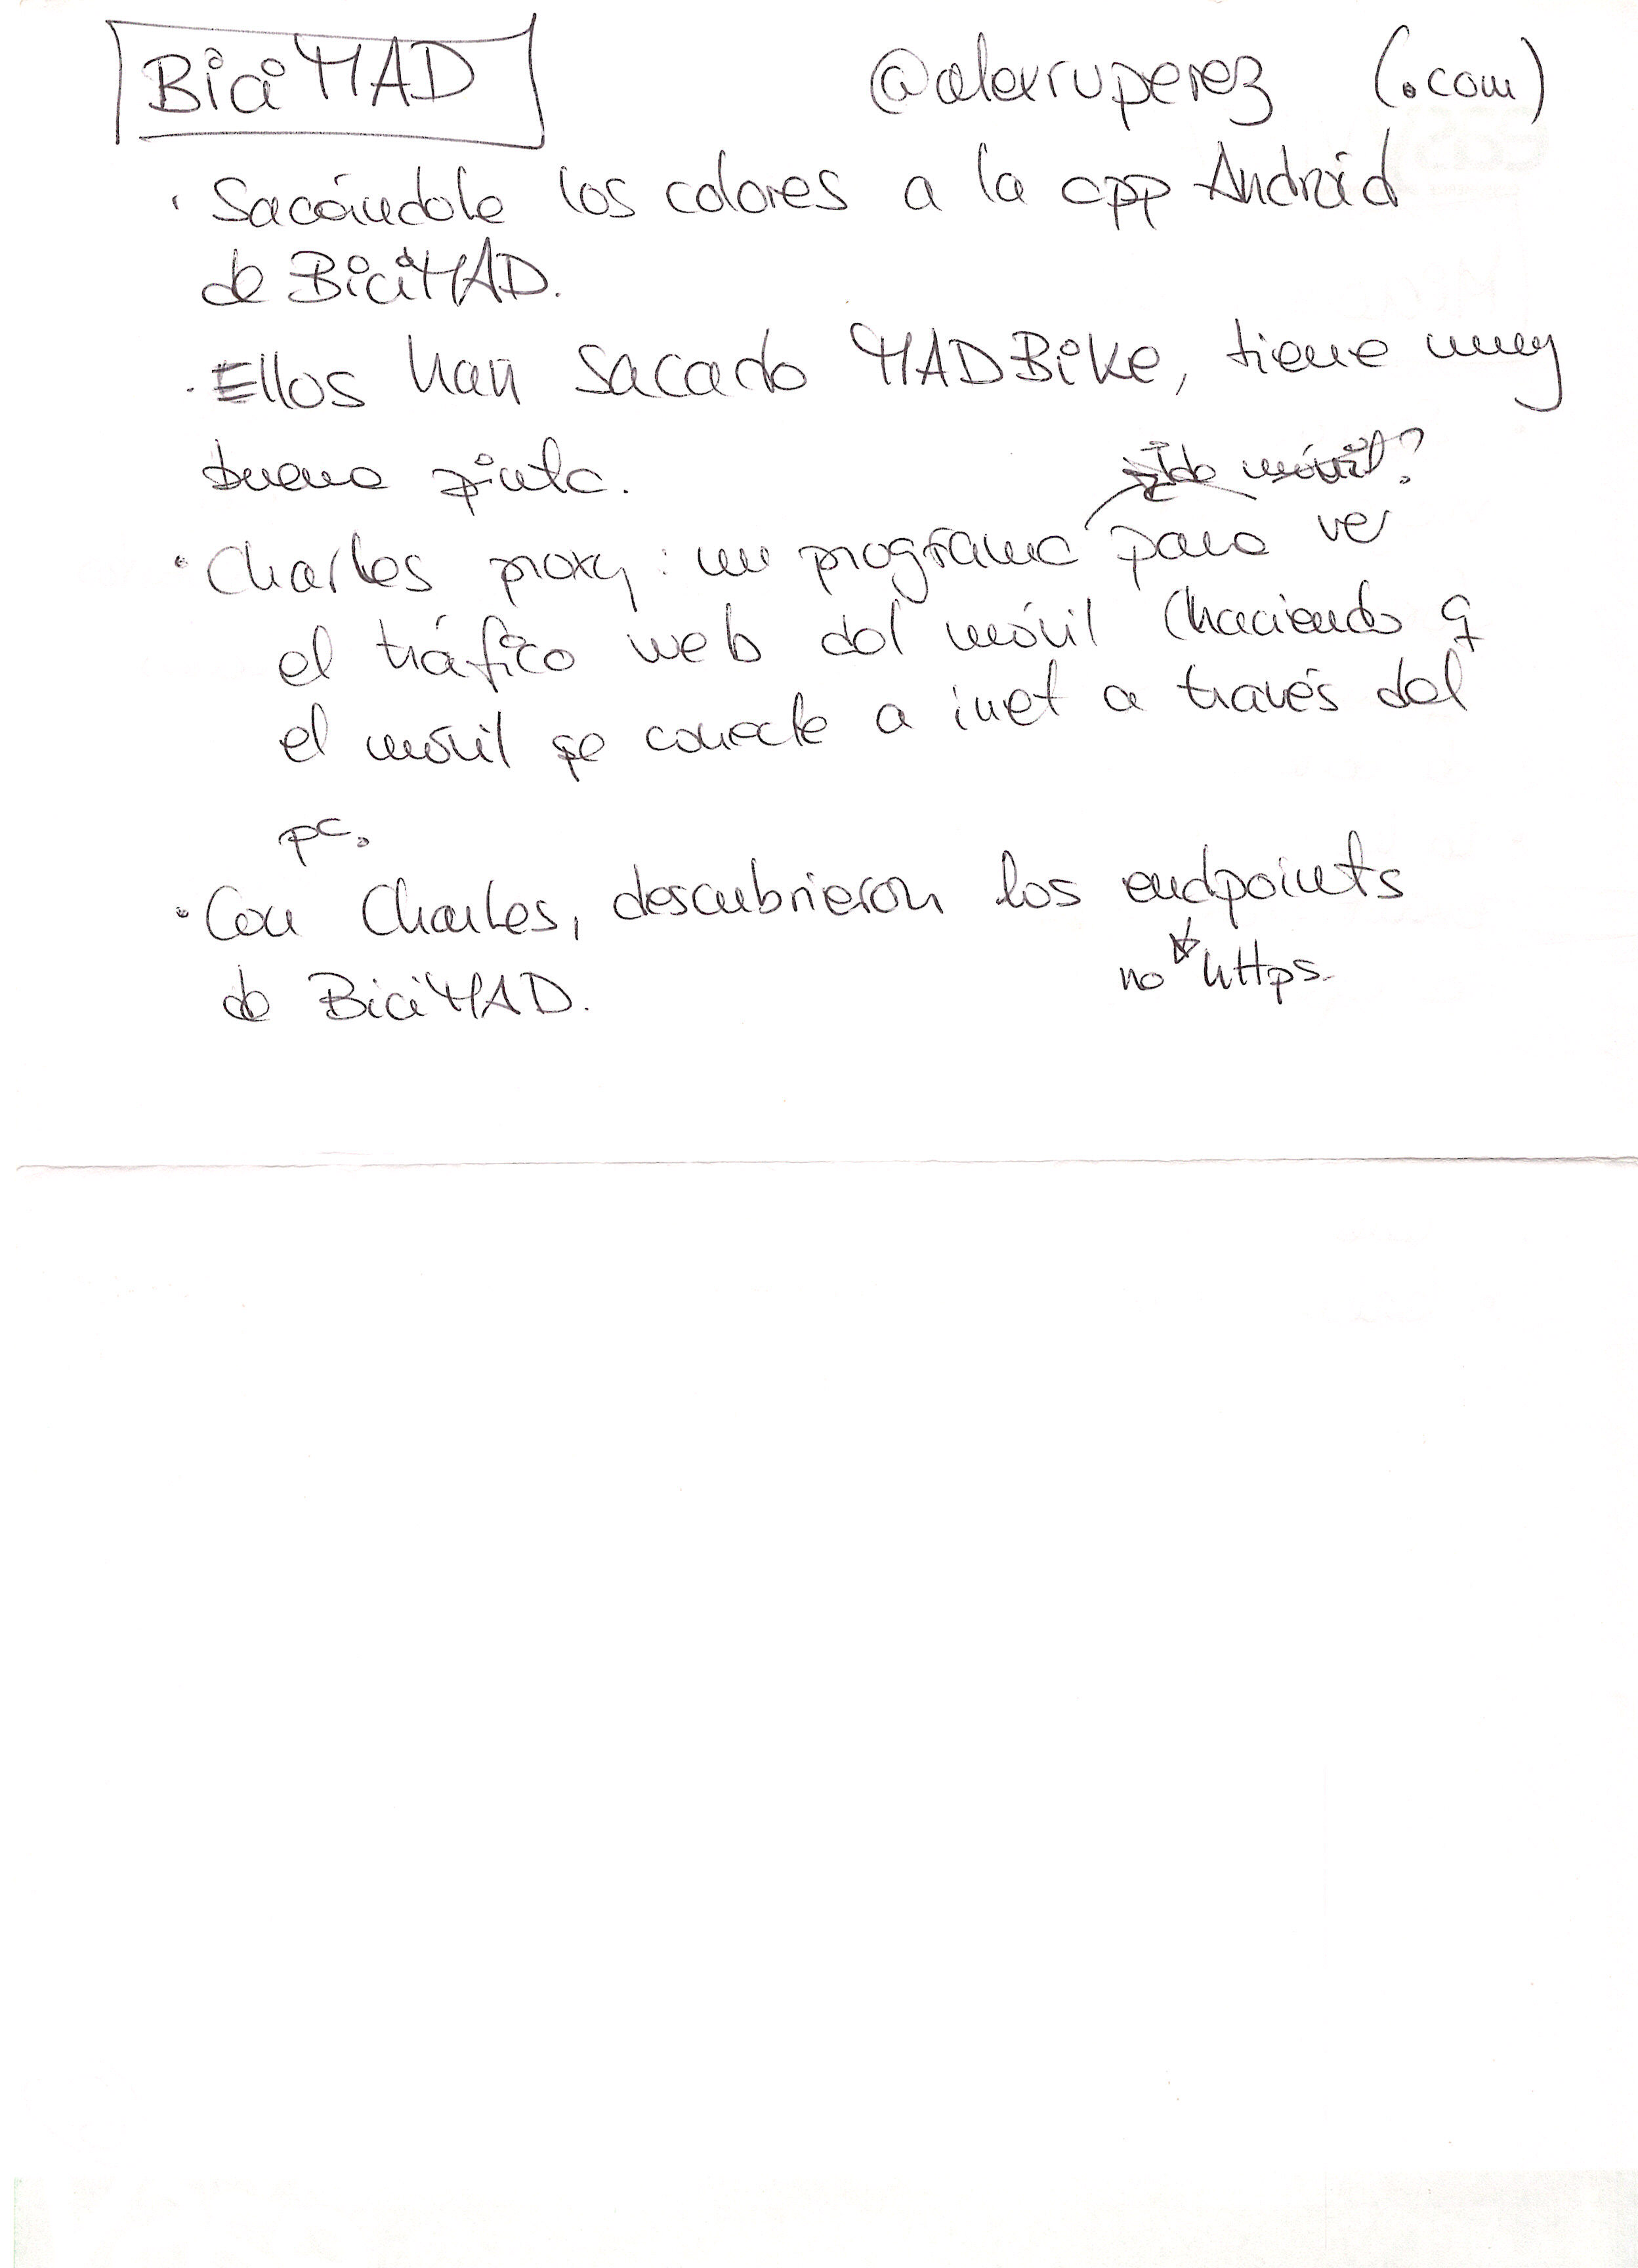 BiciMAD @alexruperez (.com)
· Sacándole los colores a la app Android
de BiciMAD.
· Ellos han sacado MADBike, tiene muy
buena pinta.
¿De móvil?
· Charles proxy: un programa para ver
el tráfico web del móvil (haciendo q
el móvil se conecte a inet a través del
pc.
· Con Charles, descubrieron los endpoints
no https.
de BiciMAD.